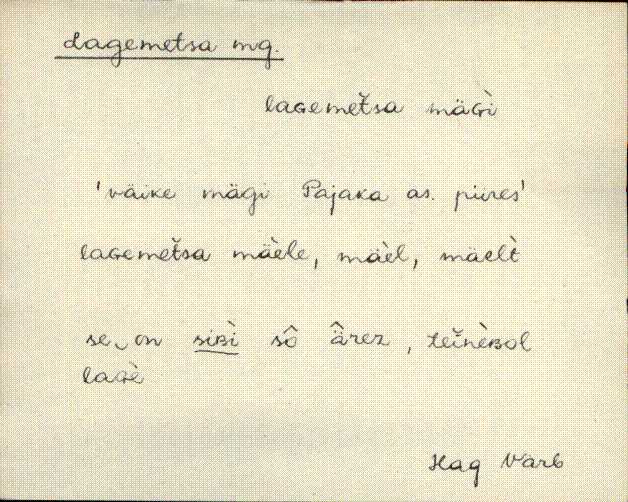 Lagemetsa mg.
laɢemet̆sa mäɢì
'väike mägi Pajaka as. piires'
laɢemet̆sa mäèle, mäèl, mäelt̀
se‿on siʙì sô ä̂rez, tĕĭnèʙol
laɢè
Hag Varb